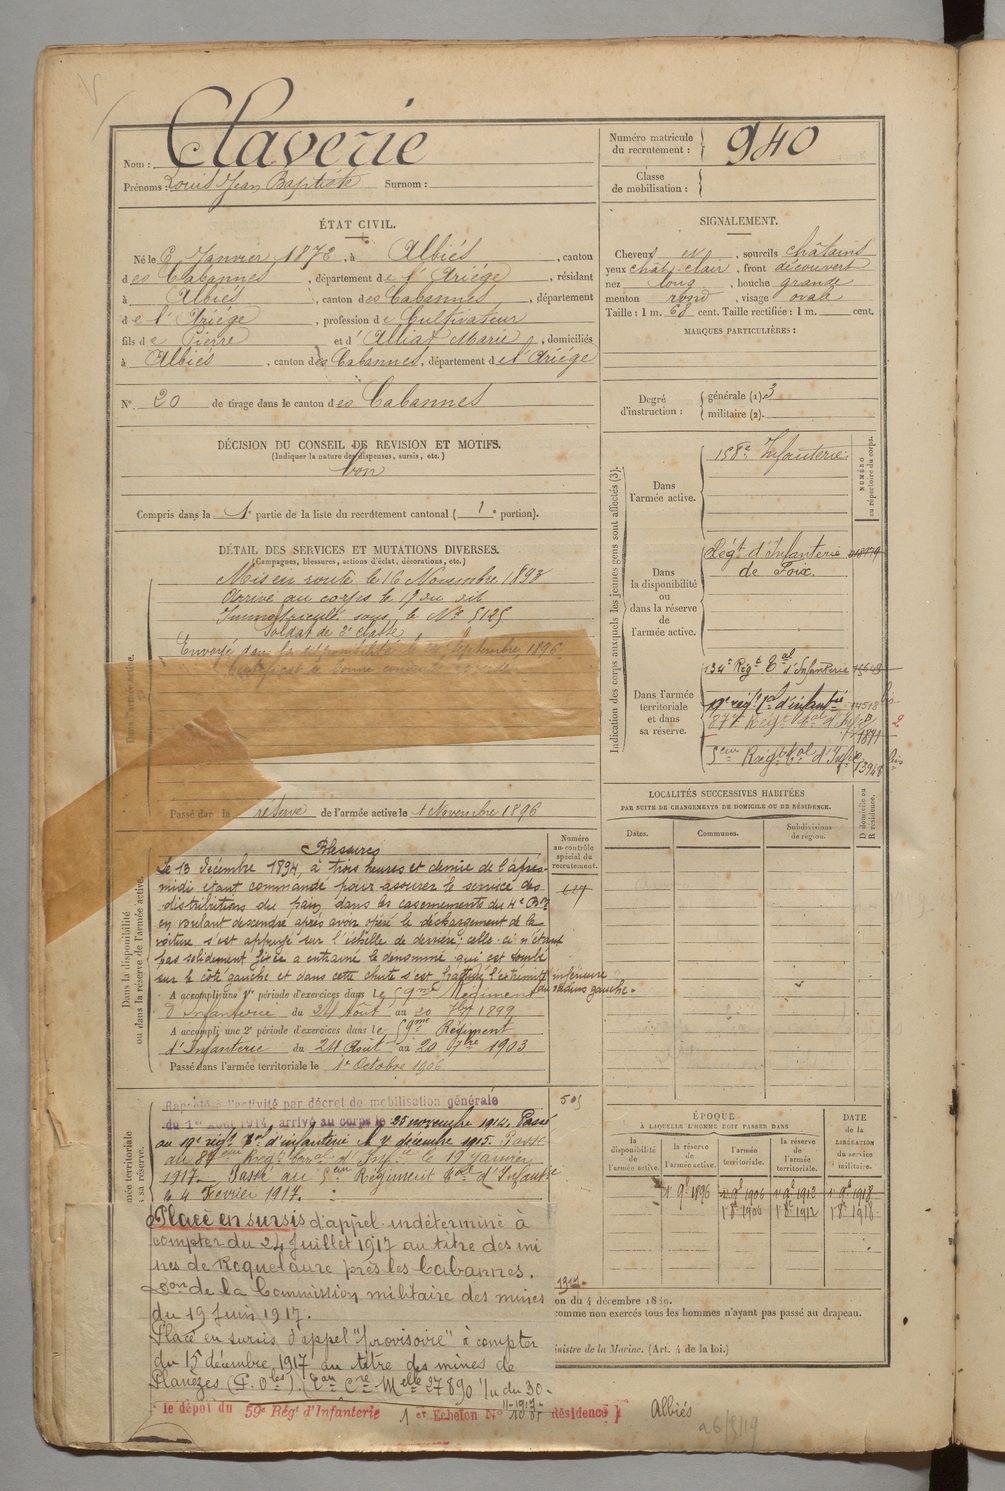 Nom : Claverie
Prénoms : Louis Jean Baptiste Surnom :
Numéro matricule
du recrutement : 940
Classe
de mobilisation :
ÉTAT CIVIL.
Né le 6 Janvier 1873, à Albiés, canton
des Cabannes, département de l'Ariége, résidant
à Albiés, canton des Cabannes, département
de l'Ariége, profession de Cultivateur
fils de Pierre et d'Alliat Marie, domiciliés
à Albiés, canton des Cabannes, département de l'Ariége
N° 20 de tirage dans le canton des Cabannes
SIGNALEMENT.
Cheveux, sourcils châtains
yeux chât. clair, front découvert
nez long, bouche grande
menton rond, visage ovale
Taille : 1 m. 68 cent. Taille rectifiée : 1 m. cent.
MARQUES PARTICULIÈRES :
Degré
d'instruction :
générale (1) 3
militaire (2).
DÉCISION DU CONSEIL DE REVISION ET MOTIFS.
(Indiquer la nature des dispenses, sursis, etc.)
bon
Compris dans la 1e partie de la liste du recrutement cantonal ( 1e portion).
DÉTAIL DES SERVICES ET MUTATIONS DIVERSES.
(Campagnes, blessures, actions d'éclat, décorations, etc.)
Mis en route le 16 Novembre 1893
Arrivé au corps le 17 du dit
Immatriculé sous le N° 5125
Soldat de 2e classe
Envoyé dans la disponibilité le Septembre 1896
Certificat de bonne conduite accordé
Passé dans la réserve de l'armée active le 1 Novembre 1896
Indication des corps auxquels les jeunes gens sont affectés (3).
NUMÉRO
au répertoire du corps.
Dans
l'armée active.
158e Infanterie
Dans
la disponibilité
ou
dans la réserve
de
l'armée active.
Régt d'Infanterie
de Foix.
Dans l'armée
territoriale
et dans
sa réserve.
134e Régt Tal d'Infanterie
19e régt Tal d'infantie 14518 bis
5eme Régt Tal d'Infie 13948 bis
LOCALITÉS SUCCESSIVES HABITÉES
PAR SUITE DE CHANGEMENTS DE DOMICILE OU DE RÉSIDENCE.
Dates.
Communes.
Subdivisions
de région.
D domicile ou
R résidence.
Numéro
au contrôle
spécial du
recrutement.
Dans la disponibilité
ou dans la réserve de l'armée active.
Blessures
Le 13 Décembre 1894, à trois heures et demie de l'après-
midi étant commandé pour assurer le service des
distributions du pain dans les casernements du 4e Bon
en voulant descendre après avoir opéré le déchargement de la
voiture s'est appuyé sur l'échelle de derrière; celle-ci n'étant
pas solidement fixée a entrainé le dénommé qui est tombé
sur le côté gauche et dans cette chute s'est fracturé l'extrémité inférieure
du radius gauche.
A accompli une 1e période d'exercices dans le 59me Régiment
d'Infanterie du 24 Août au 20 7bre 1899
A accompli une 2e période d'exercices dans le 59me Régiment
d'Infanterie du 24 Août au 20 7bre 1903
Passé dans l'armée territoriale le 1e Octobre 1906
Rappelé à l'activité par décret de mobilisation générale
du 1er Août 1914, arrivé au corps le 25 novembre 1914. Passé
au 19e régt Tal d'infanterie le 7 décembre 1915. Passé
au 87eme Régt Terral d'Infie le 19 janvier
1917. Passé au 5eme Régiment Tal d'Infantie
le 4 Février 1917.
Placé en sursis d'appel indéterminé à
compter du 24 Juillet 1917 au titre des mi
nes de Roquelaure près les Cabannes.
Don de la Commission militaire des mines
du 19 Juin 1917.
Placé en sursis d'appel "provisoire" à compter
du 15 décembre 1917 au titre des mines de
Planèzes (P. Oles).
le dépôt du 59e Rég' d'Infanterie 1er Echelon N° résidence Albiés
ÉPOQUE
À LAQUELLE L'HOMME DOIT PASSER DANS
la
disponibilité
de
l'armée active.
la réserve
de
l'armée active.
l'armée
territoriale.
la réserve
de
l'armée
territoriale.
DATE
de la
LIBÉRATION
du service
militaire.
1 9bre 1896 1 9bre 1906 1 9bre 1912 1 9bre 1918
1 8bre 1906 1 8bre 1912 1 8bre 1918
on du 4 décembre 1889.
comme non exercés tous les hommes n'ayant pas passé au drapeau.
inistre de la Marine. (Art. 4 de la loi.)